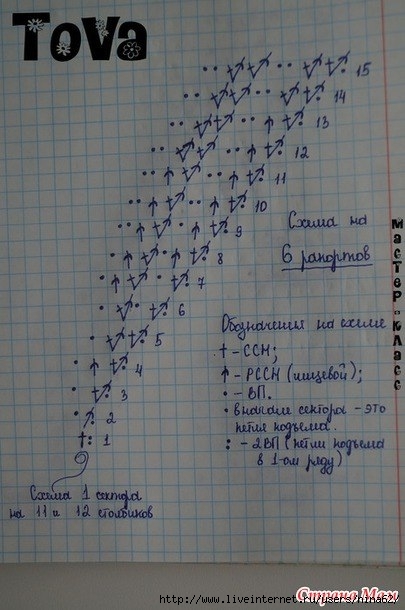 Tova
15
14
13
12
11
10
9
8
7
6
5
4
3
2
1
Схема на
6 рапортов
Обозначения на схеме
† - ССН;
↑ - РССН (лицевой);
· - ВП.
· в начале сектора - это
петля подъема.
: - 2ВП (петли подъема
в 1-ом ряду)
Схема 1 сектора
на 11 и 12 столбиков
мастер-класс
Страна Мам
http://www.liveinternet.ru/users/nina62/